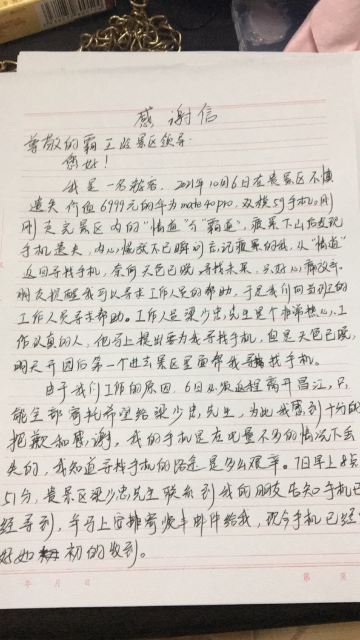 感谢信
尊敬的霸王岭景区领导:
您好!
我是一名游客,2021年10月6日在贵景区不慎
遗失价值6999元的华为mate40pro,双模5g手机。刚
刚走完景区内的“情道”和“霸道”,疲惫下山后发现
手机遗失,内心惶恐不已瞬间忘记疲惫的我,从“情道”
返回寻找手机,奈何天色已晚寻找未果,只好心
朋友提醒我可以寻求工作人员的帮助,于是我们向当班的
工作人员寻求帮助。工作人员梁少忠先生是个非常热心,工
作认真的人,他马上提出要为我寻找手机,但是天色已晚,
明天开园后第一个进去景区里面帮我寻找手机。
由于我们工作的原因,6日必须返程离开昌江,只
能全部寄托希望给梁少忠先生,为此我感到十分的
抱歉和感谢,我的手机是在电量不多的情况下丢
失的,我知道寻找手机的路途是多么艰辛。7日早上8点
51分,贵景区梁少忠先生联系到我的朋友告知手机已
经寻到,并马上安排寄快递邮件给我,现今手机已经
好如初的收到。
年 月 日 第 页